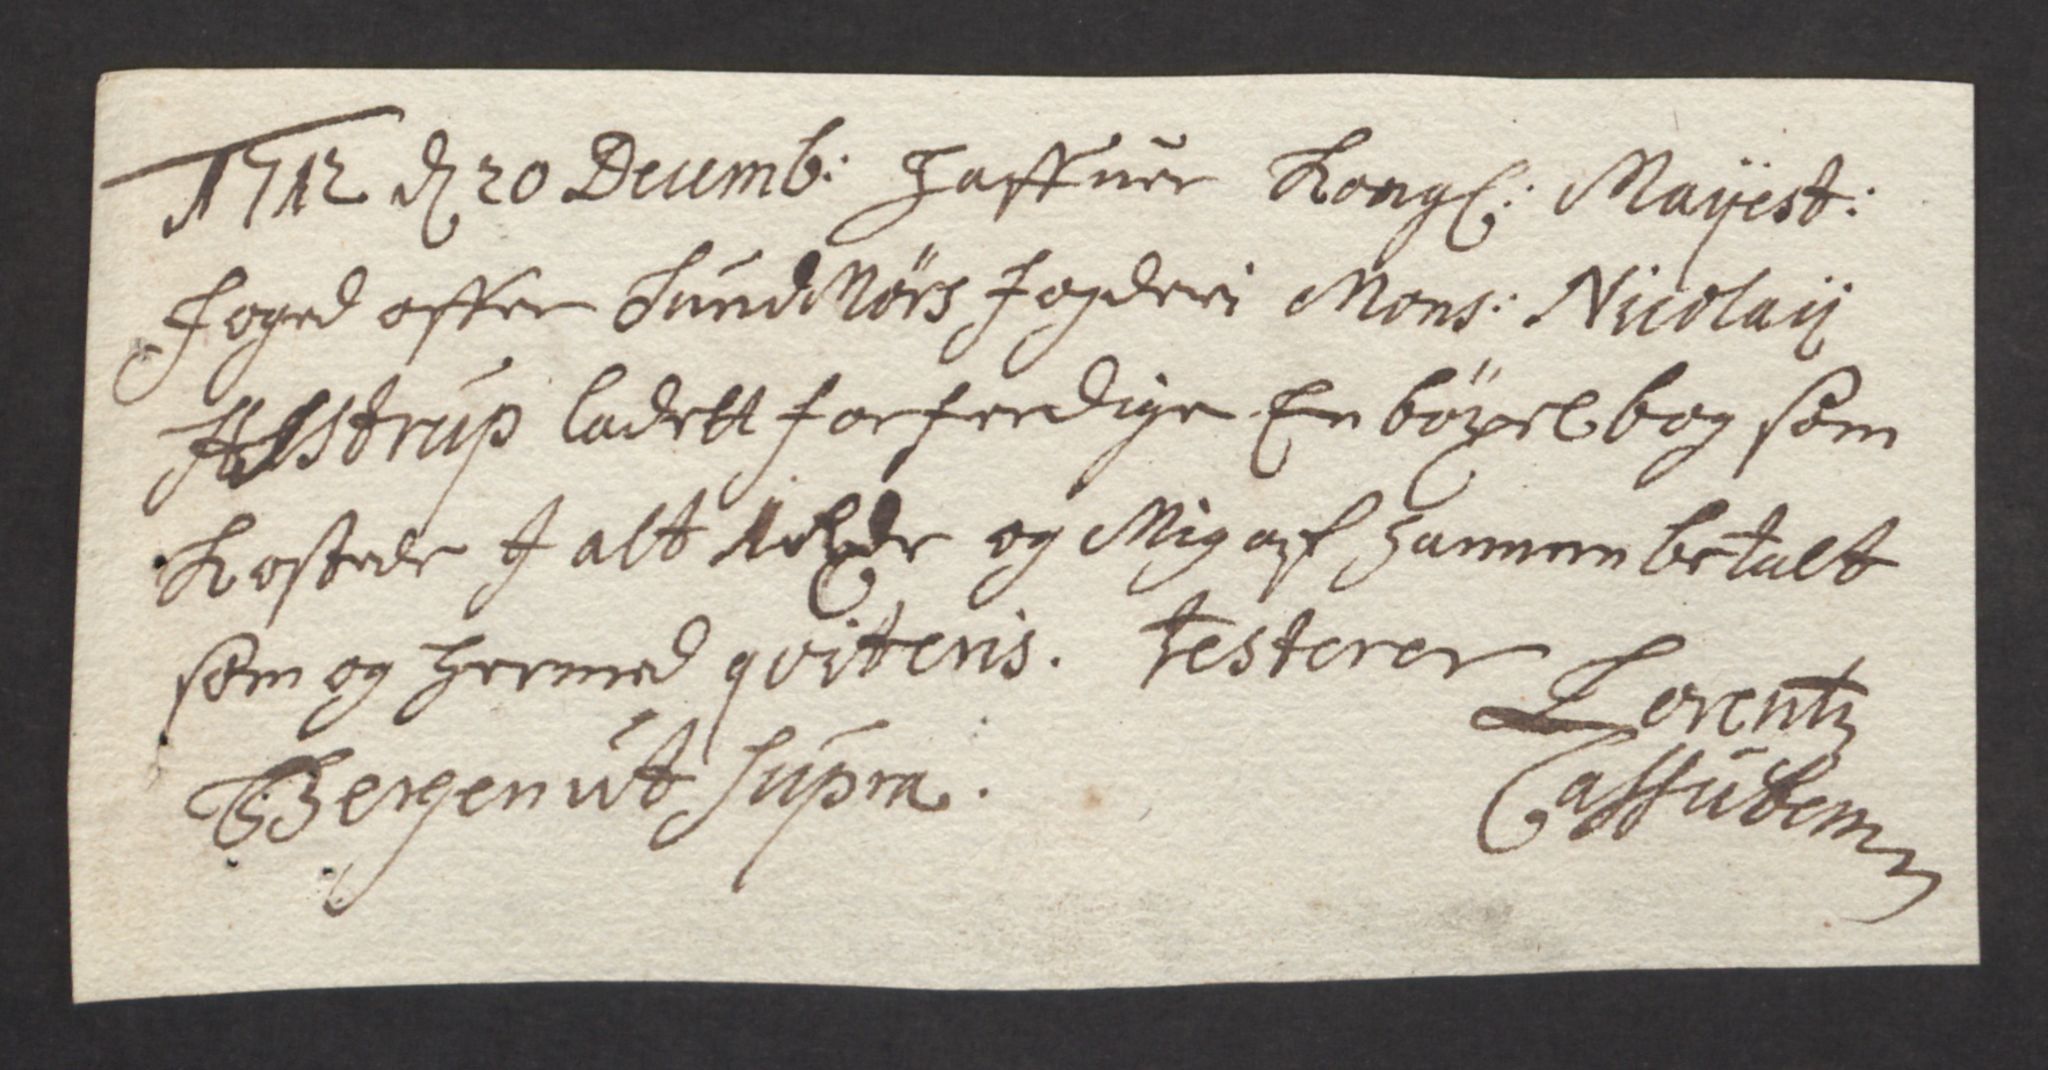 1712 d 20 Decemb: Haffuer Kongl: Mayest:
foged offuer Sundmörs fogderi Mons: Nicolaij
Astrup ladett forferdige En böxel bog som
Kostede J alt og Mig af hannem betalt
som og hermed qvitteris. testerer Lorentz
Bergen ut supra. Cassuben